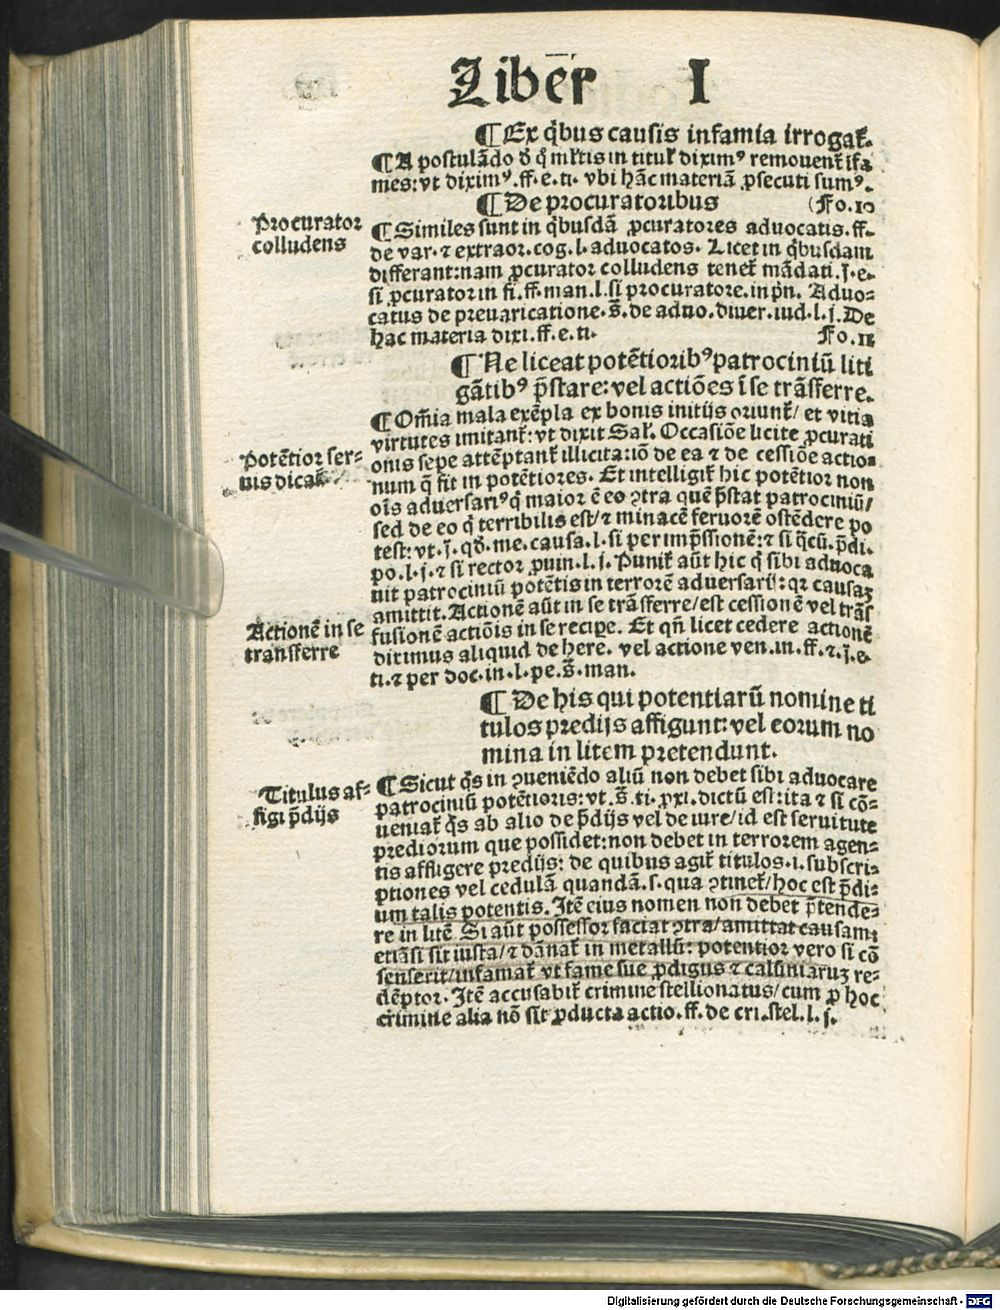 Liber̄ I
¶ Ex q̇bus causis infamia irrogat̄.
¶ A postulādo ð q̇ mĺtis in titul' dixim⁹ remouent̄ ifa
mes: vt dixim⁹. ff. e. ti. vbi hāc materiā ꝓsecuti sum⁹.
¶ De procuratoribus (Fo. 10
Procurator
colludens
¶ Similes sunt in q̇busdā ꝓcuratores aduocatis. ff.
de var. ⁊ extraor. cog. l. aduocatos. Licet in q̇busdam
differant: nam ꝓcurator colludens tenet̄ mādati. j. e.
si ꝓcurator in fi. ff. man. l. si procuratore. in pn̄. Aduo⸗
catus de preuaricatione. s̄. de aduo. diuer. iud. l. j. De
hac materia dixi. ff. e. ti. Fo. 11
¶ Ne liceat potētiorib⁹ patrociniū liti
gātib⁹ p̄stare: vel actiōes ī se trāsferre.
¶ Om̄ia mala exēpla ex bonis initijs oriunt̄/ et vitia
virtutes imitant̄: vt dixit Sal'. Occasiōe licite ꝓcurati
Potētior ser⸗
uis dicat̄
onis sepe attēptant̄ illicita: iō de ea ⁊ de cessiōe actio⸗
num q̄ fit in potētiores. Et intelligit̄ hic potētior non
oīs aduersari⁹ q̇ maior ē eo ꝯtra quē p̄stat patrociniū/
sed de eo q̇ terribilis est/ ⁊ minacē feruorē ostēdere po
test: vt. j. qð. me. causa. l. si per imp̄ssionē: ⁊ si q̇cū. p̄di.
po. l. j. ⁊ si rector ꝓuin. l. j. Punit̄ aūt hic q̇ sibi aduoca
uit patrociniū potētis in terrorē aduersarij: qꝛ causaꝫ
amittit. Actionē aūt in se trāsferre/ est cessionē vel trās
Actionē in se
transferre
fusionē actiōis in se recipe. Et qn̄ licet cedere actionē
diximus aliquid de here. vel actione ven. in. ff. ⁊. j. e.
ti. ⁊ per doc. in. l. pe. s̄. man.
¶ De his qui potentiarū nomine ti
tulos predijs affigunt: vel eorum no
mina in litem pretendunt.
Titulus af⸗
figi p̄dijs
¶ Sicut q̇s in ꝯueniēdo aliū non debet sibi aduocare
patrociniū potētioris: vt. s̄. ti. ꝓxi. dictū est: ita ⁊ si cō⸗
ueniat̄ q̇s ab alio de p̄dijs vel de iure/ id est seruitute
prediorum que possidet: non debet in terrorem agen⸗
tis affligere predijs: de quibus agit̄ titulos. i. subscri⸗
ptiones vel cedulā quandā. s. qua ꝯtinet̄/ hoc est p̄di⸗
um talis potentis. Itē eius nomen non debet p̄tende⸗
re in litē. Si aūt possessor faciat ꝯtra/ amittat causam:
etiāsi sit iusta/ ⁊ dānat̄ in metallū: potentior vero si cō
senserit/ infamat̄ vt fame sue ꝓdigus ⁊ calūniaruꝫ re⸗
dēptor. Itē accusabit̄ crimine stellionatus/ cum ꝓ hoc
crimine alia nō sit ꝓducta actio. ff. de cri. stel. l. j.
Digitalisierung gefördert durch die Deutsche Forschungsgemeinschaft - DFG